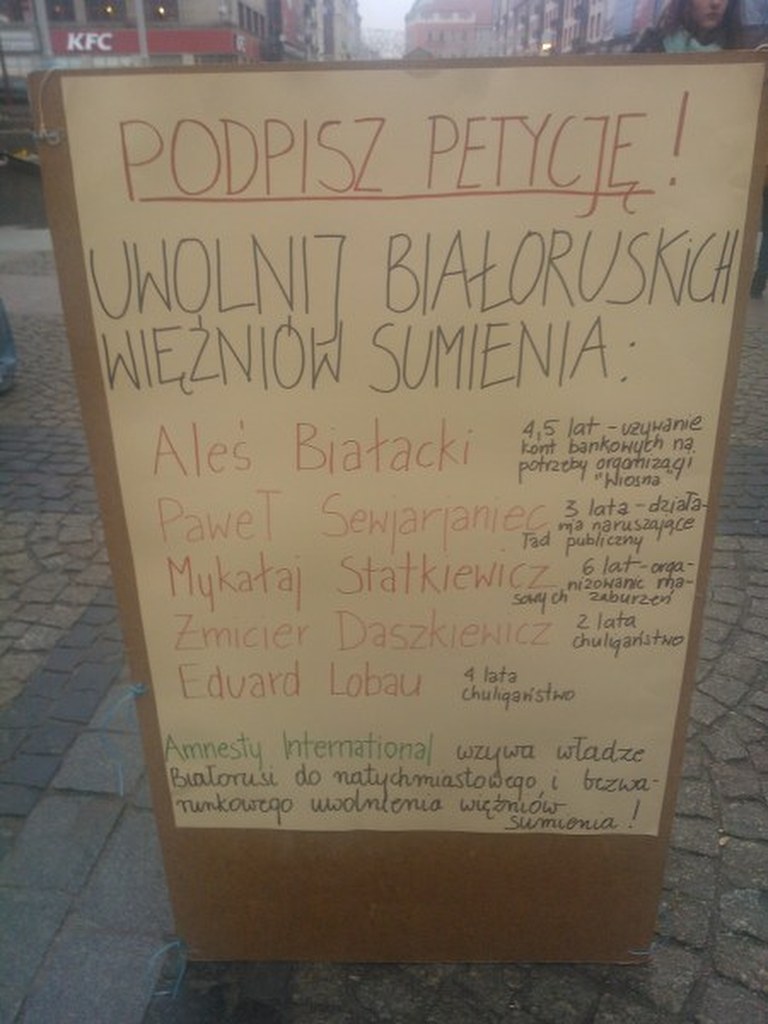 KFC
PODPISZ PETYCJĘ!
UWOLNIJ BIAŁORUSKICH
WIĘŹNIÓW SUMIENIA:
Aleś Białacki 4,5 lat - używanie
kont bankowych na
potrzeby organizacji
"Wiosna"
Paweł Sewjarjaniec 3 lata - działa-
nia naruszające
ład publiczny
Mykałaj Statkiewicz 6 lat - orga-
nizowanie ma-
sowych zaburzeń
Zmicier Daszkiewicz 2 lata
chuligaństwo
Eduard Lobau 4 lata
chuligaństwo
Amnesty International wzywa władze
Białorusi do natychmiastowego i bezwa-
runkowego uwolnienia więźniów
sumienia!